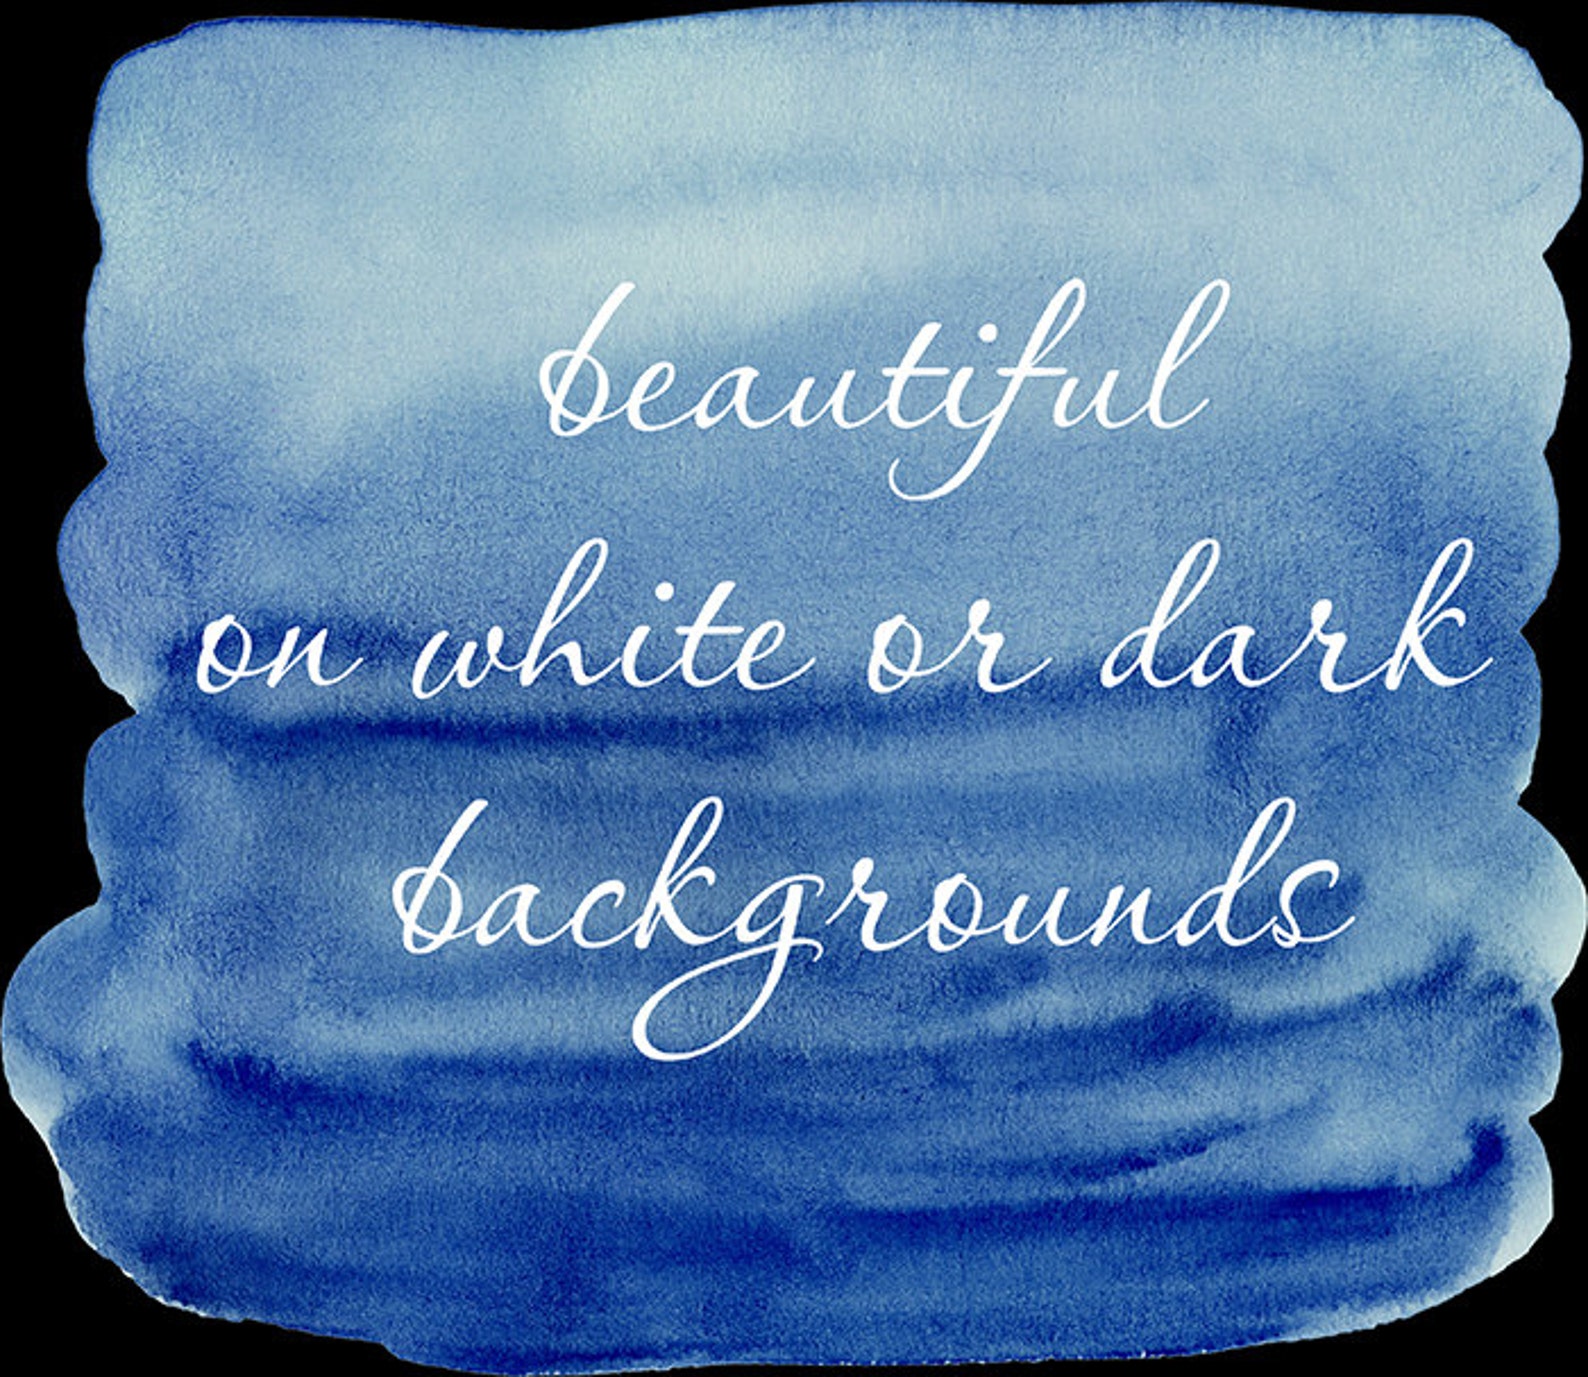 beautiful
on white or dark
backgrounds